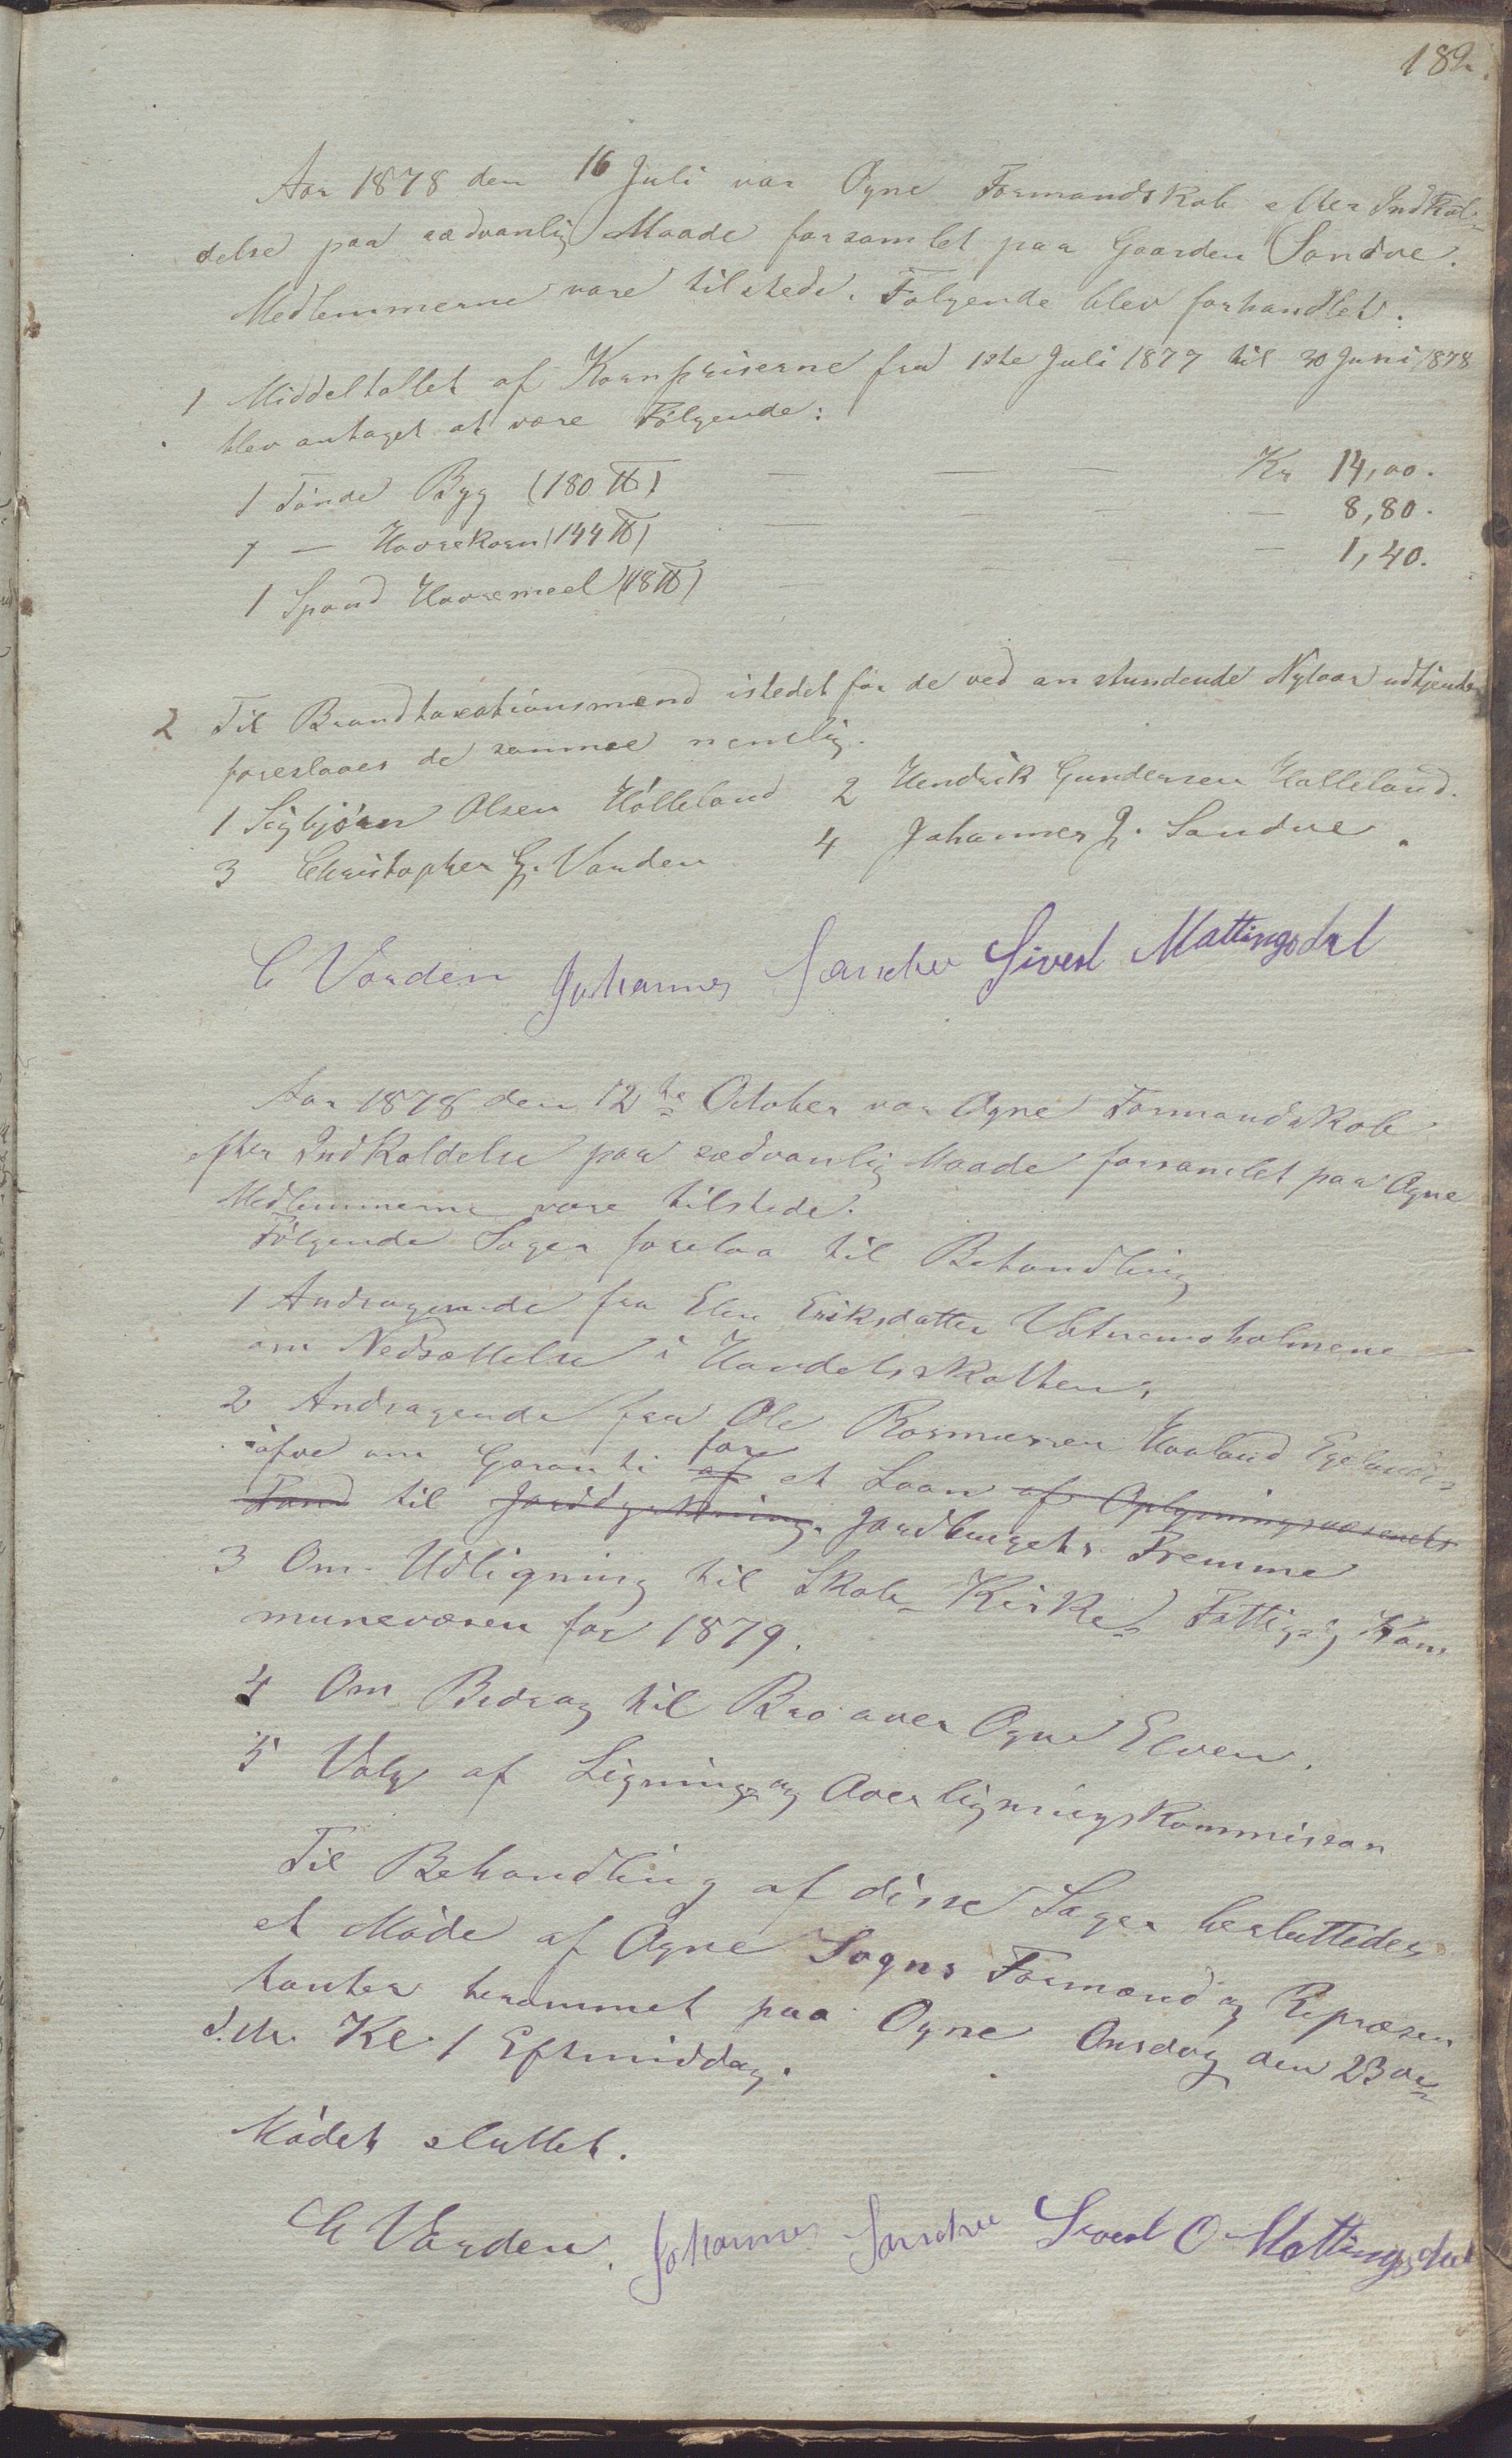 182.
Aar 1878 den 16 Juli var Ogne Formandskab efter Indkal-
delse paa sædvanlig Maade forsamlet paa Gaarden Sandve.
Medlemmerne vare tilstede. Følgende blev forhandlet.
1 Middeltallet af Kornpriserne fra 1ste Juli 1877 til 30 Juni 1878
blev antaget at være Følgende:
1 Tønde Byg (180 ℔) — — — Kr 14,00.
1 — Havrekorn (144 ℔) — — — — 8,80.
1 Spand Havremeel (18 ℔) — — — — 1,40.
2 Til Brandtaxationsmænd istedet for de ved anstundende Nytaar udtjente
foreslaaes de samme nemlig.
1 Sigbjørn Olsen Hølleland 2 Hendrik Gundersen Hølleland.
3 Christopher G. Varden 4 Johannes J. Sandve.
C Varden Johannes Sandve Sivert Mattingsdal
Aar 1878 den 12te October var Ogne Formandskab
efter Indkaldelse paa sædvanlig Maade forsamlet paa Ogne
Medlemmerne vare tilstede.
Følgende Sager forelaa til Behandling
1 Andragende fra Elen Eriksdatter Vatnemoholmene
om Nedsættelse i Handelsskatten.
2 Andragende fra Ole Rasmussen Haaland Egelands-
om Garanti af for et Laan af Oplysningsvæsenets
Fond til Jorddyrkning. Jordbrugets Fremme
3 Om Udligning til Skole- Kirke- Fattig- og Kom
munevæsen for 1879.
4 Om Bidrag til Bro over Ogne Elven.
5 Valg af Ligning- og Overligningskommission
Til Behandling af disse Sager besluttedes
et Møde af Ogne Sogns Formænd og Repræsen
tanter berammet paa Ogne Onsdag den 23de
d. M. Kl. 1 Eftmiddag.
Mødet sluttet.
Ch Varden. Johannes Sandve Sivert O Mattingsdal